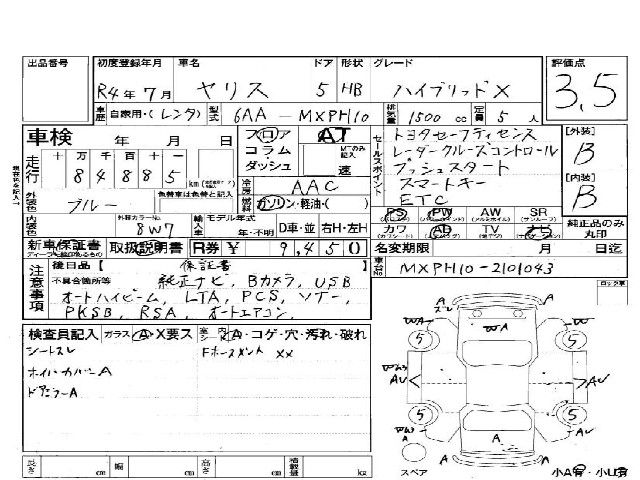 出品番号 初度登録年月 車名 ドア 形状 グレード 評価点
R4年7月 ヤリス 5 HB ハイブリッドX 3,5
車歴 自家用・(レンタ) 型式 6AA-MXPH10 排気量 1500 cc 定員 5人
車検 年 月 日 フロア コラム ダッシュ AT 速
走行 十 万 千 百 十 一
8 4 8 8 5 km
冷房 AAC
燃料 ガソリン・軽油・( )
セールスポイント トヨタセーフティセンス
レーダークルーズコントロール
プッシュスタート
スマートキー
ETC
[外装] B
[内装] B
外装色 ブルー 色替車は色替と記入
内装色 外装カラーNo. 8W7
輸入車 モデル年式 年・不明 D車・並 右H・左H
PS PW AW SR
カワ AB TV ナビ
純正品のみ丸印
新車保証書 取扱説明書 R券 ¥ 9,450
名変期限 月 日迄
車台No. MXPH10-2101043
注意事項 後日品【 保証書
不具合箇所等 純正ナビ, Bカメラ, USB
オートハイビーム, LTA, PCS, ソナー,
PKSB, RSA, オートエアコン,
検査員記入 ガラス A・X要ス 室内 A・コゲ・穴・汚れ・破れ
シートスレ
ホイルカバーA
ドアミラーA
ロック車
A
A A
5 5
AU AU
5 5
A A
スペア
長さ cm 幅 cm 高さ cm 積載量 kg
小A有・小U有